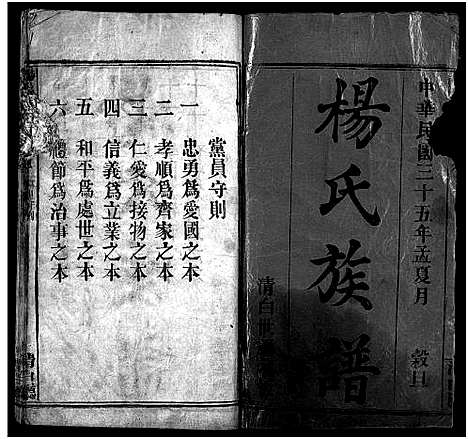 中華民國三十五年孟夏月 穀旦
楊氏族譜
清白世
黨員守則
一 忠勇為愛國之本
二 孝順為齊家之本
三 仁愛為接物之本
四 信義為立業之本
五 和平為處世之本
六 禮節為治事之本